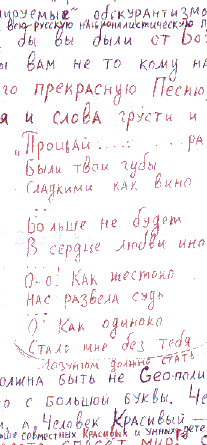 ируемые" обскурантизмо
всю русскую националистическую л
бы вы были от Бо
ы вам не то кому на
го прекрасную Песню
я и слова грусти и
„Прощай . . . . : . . . ра
Были твои губы
Сладкими как вино
. . .
Больше не будет
В сердце любви ино
. . .
О-о! Как жестоко
Нас развела судь
. . .
О! Как одиноко
Стало мне без тебя
Лозунгом должно стать
олжна быть не Geo-поли
то с большой буквы. Че
, а Человек Красивый —
ьше совместных Красивых и Умных дете